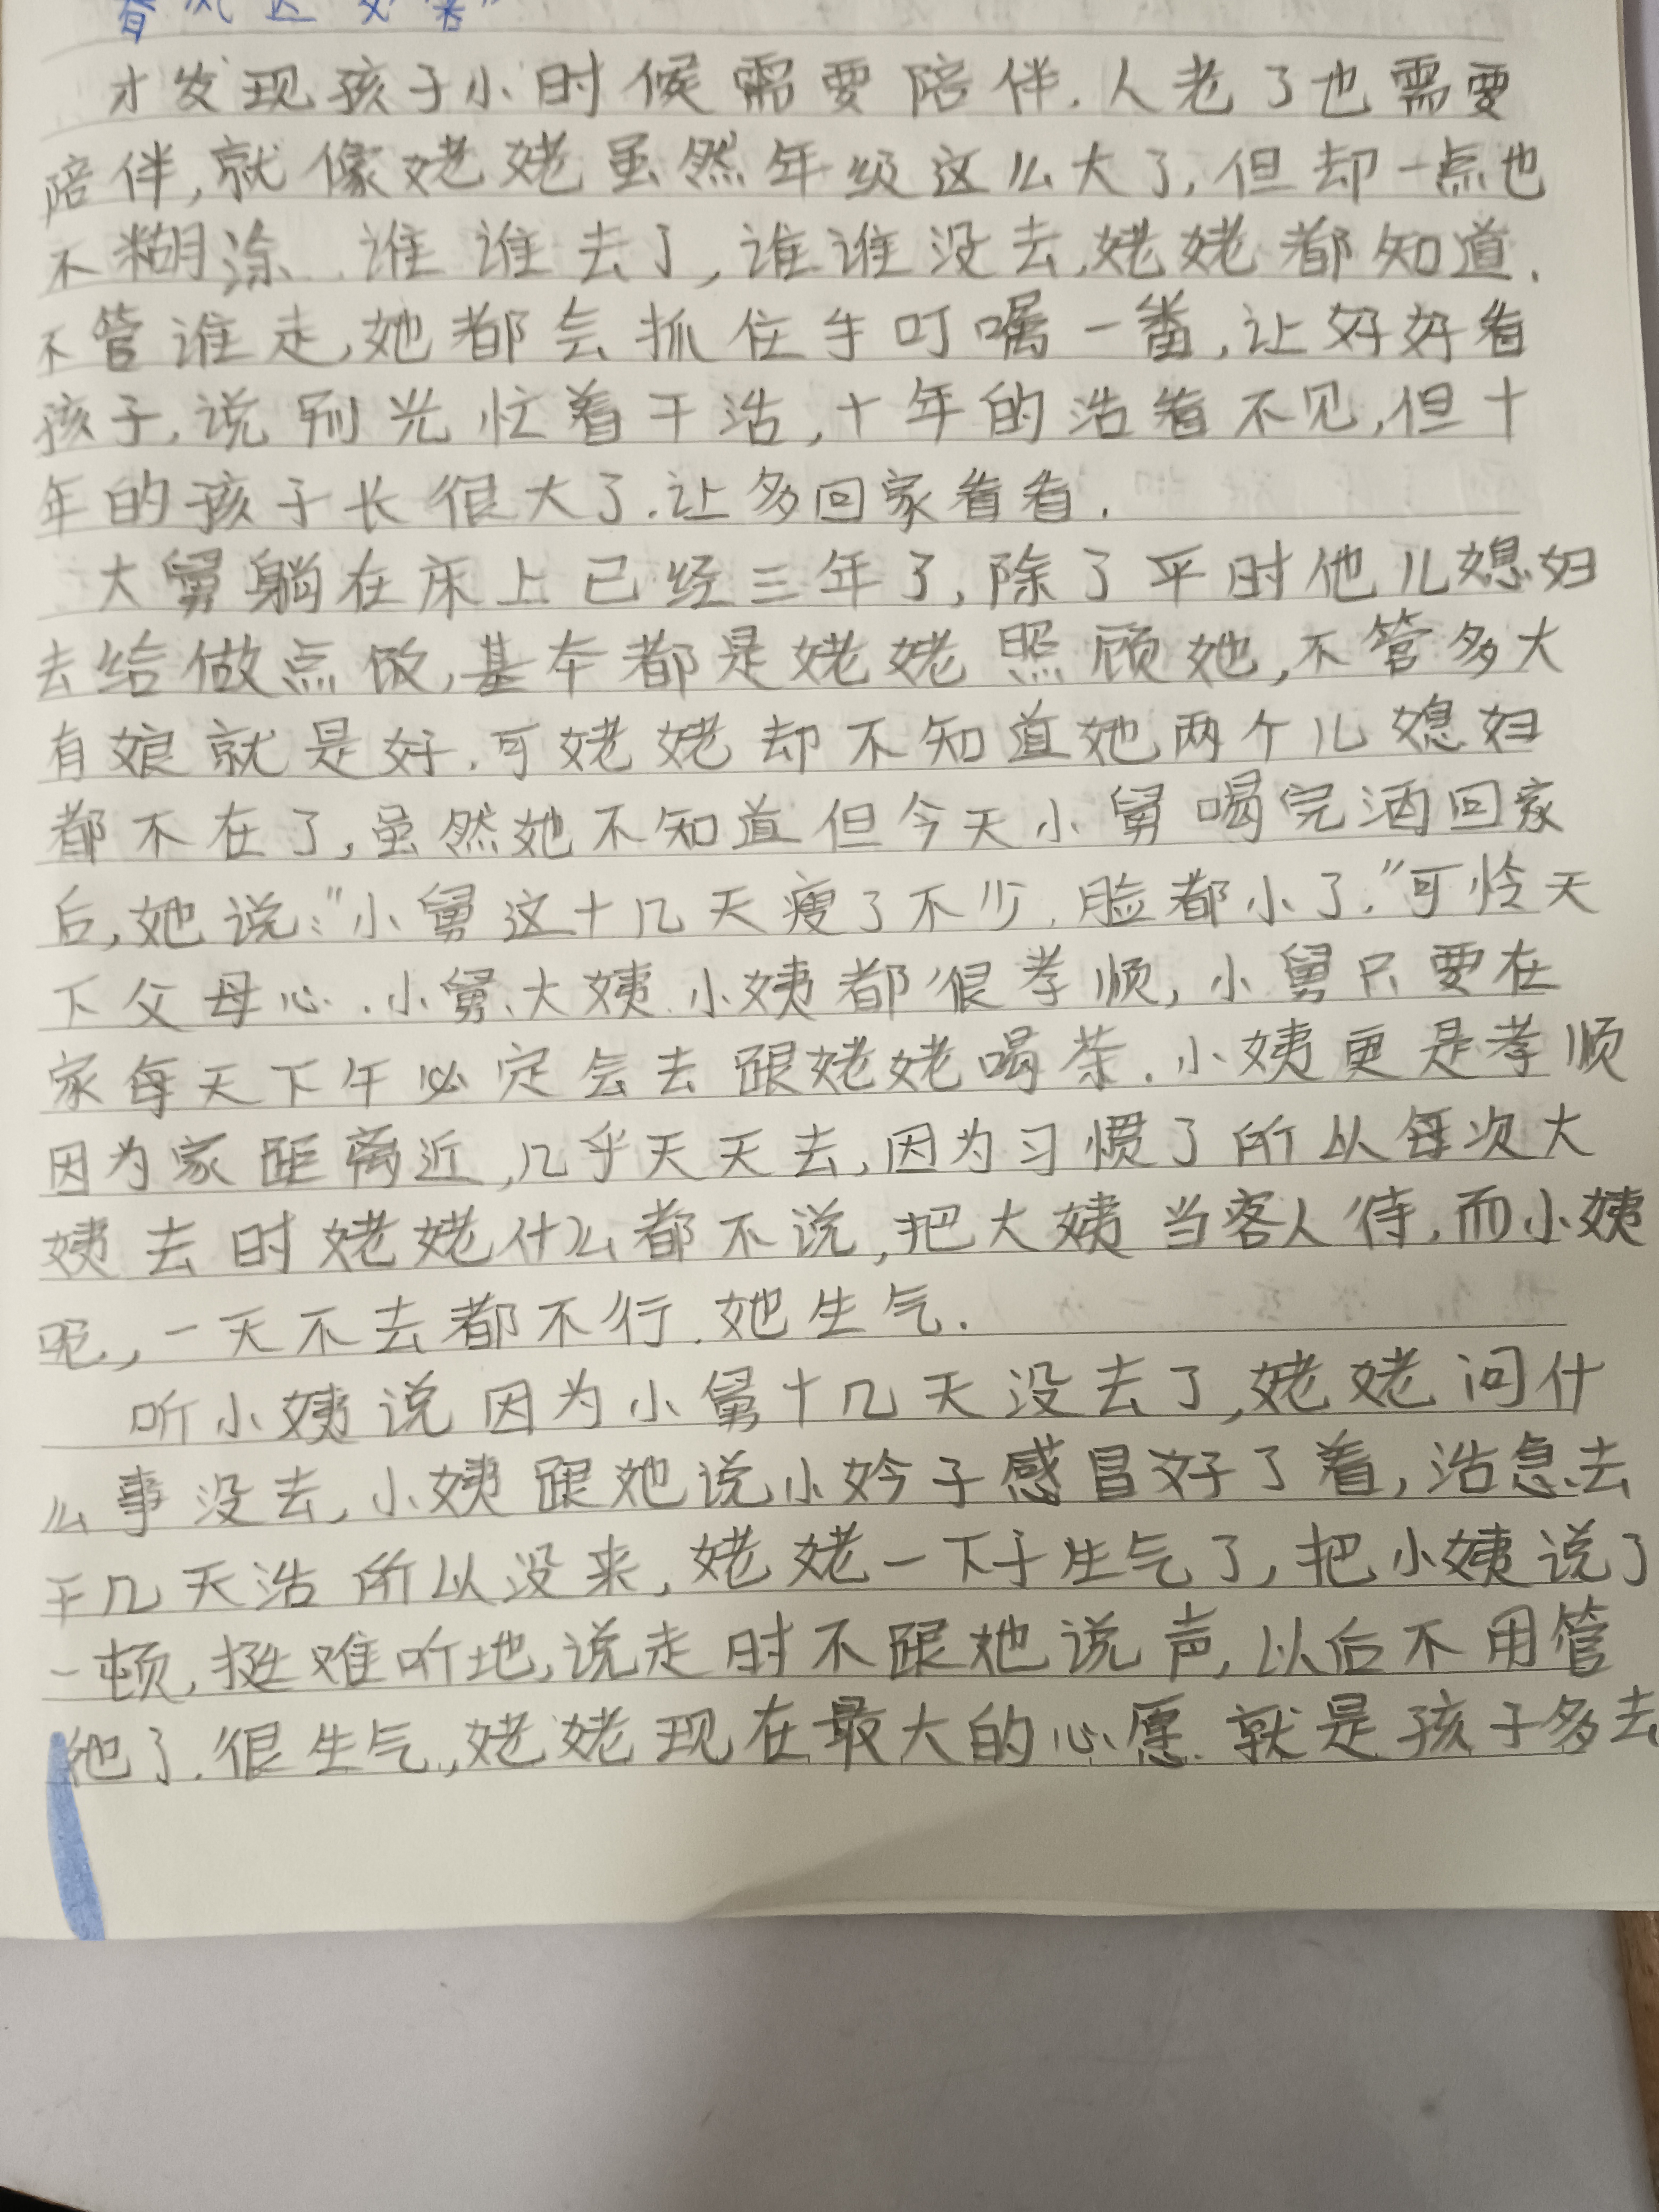 才发现孩子小时候需要陪伴.人老了也需要
陪伴,就像姥姥虽然年级这么大了,但却一点也
不糊涂.谁谁去了,谁谁没去,姥姥都知道.
不管谁走,她都会抓住手叮嘱一番,让好好看
孩子,说别光忙着干活,十年的活看不见,但十
年的孩子长很大了.让多回家看看.
大舅躺在床上已经三年了,除了平时他儿媳妇
去给做点饭,基本都是姥姥照顾她,不管多大
有娘就是好.可姥姥却不知道她两个儿媳妇
都不在了,虽然她不知道但今天小舅喝完酒回家
后,她说:"小舅这十几天瘦了不少.脸都小了."可怜天
下父母心.小舅、大姨.小姨都很孝顺,小舅只要在
家每天下午必定会去跟姥姥喝茶.小姨更是孝顺
因为家距离近,几乎天天去,因为习惯了所以每次大
姨去时姥姥什么都不说,把大姨当客人待,而小姨
呢,一天不去都不行.她生气.
听小姨说因为小舅十几天没去了,姥姥问什
么事没去,小姨跟她说小妗子感冒好了着,活急去
干几天活所以没来,姥姥一下子生气了,把小姨说了
一顿,挺难听地,说走时不跟她说声,以后不用管
她了.很生气,姥姥现在最大的心愿.就是孩子多去